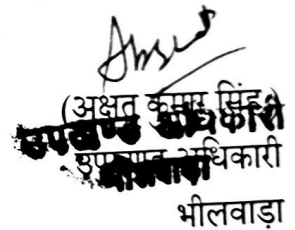 (अक्षत कुमार सिंह)
उपखण्ड अधिकारी
उपखण्ड अधिकारी
भीलवाड़ा